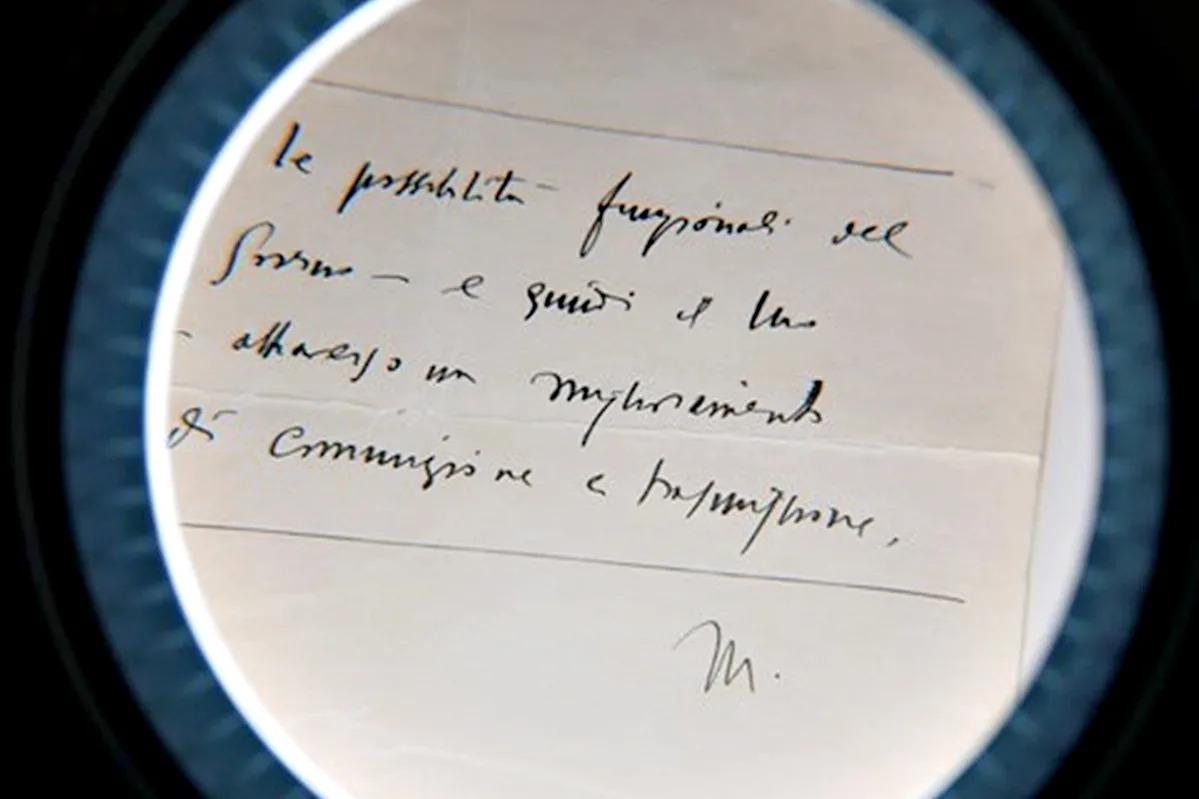 le possibilità funzionali del
Governo — e quindi el
— attraverso un miglioramento
di comunizione e trasmissione,
M.